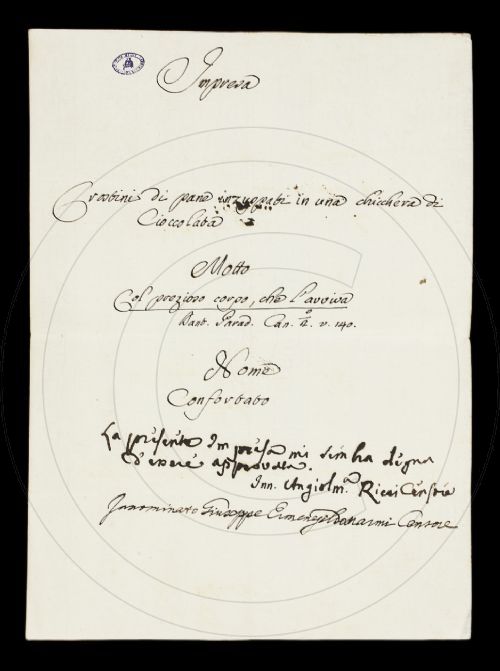 Impresa
Crostini di pane inzuppati in una chicchera di
Cioccolata
Motto
Col prezioso corpo, che l'avviva
Dant. Parad. Can. 2.º v. 140.
Nome
Confortato
La presente Impresa mi simbra degna
d'essere approvata.
Inn. Angiolm.ª Ricci Censore
Innominato Giuseppe Censore